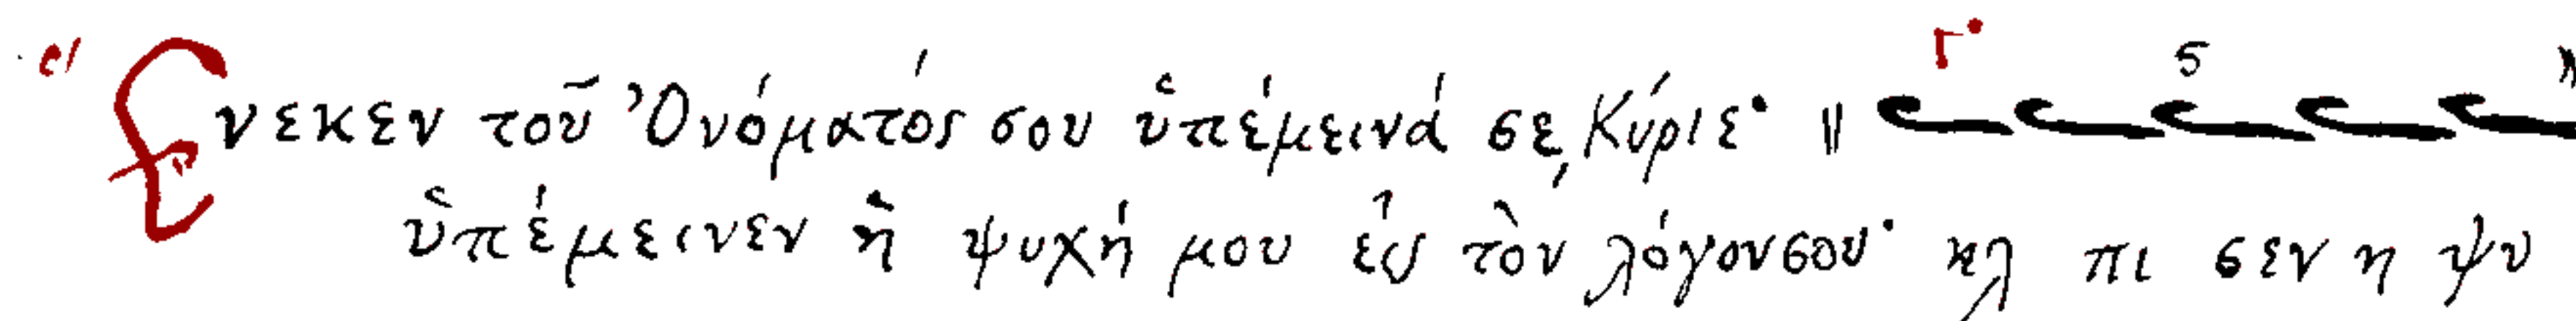 Ἕνεκεν τοῦ Ὀνόματός σου ὑπέμεινά σε, Κύριε·
ὑπέμεινεν ἡ ψυχή μου εἰς τὸν λόγον σου· ηλ πι σεν η ψυ